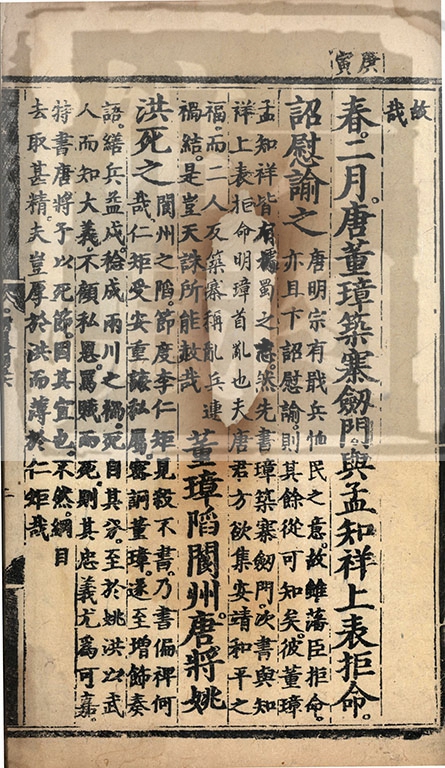 庚寅
故
哉
春。二月。唐董璋築寨劒門。與孟知祥上表拒命。
詔慰諭之
唐明宗有戢兵恤民之意。故雖藩臣拒命。
亦且下詔慰諭。則其餘從可知矣。彼董璋
孟知祥皆有蜀之然先書璋築寨劒門。次書與知
祥上表拒命。明璋首亂也。夫唐君方欲集安靖和平之
福。而二人反築寨稱亂。兵連
禍結。是豈天誅所能赦哉
董璋陷閬州。唐將姚
洪死之
閬州之陷。節度李仁矩見殺不書。乃書偏裨何
哉。仁矩受安重誨私屬。窺詗董璋。遂至增飾奏
語。繕兵益戍。稔成兩川之禍。死自其分。至於姚洪以武
人而知大義。不顧私恩。罵賊而死。則其忠義尤爲可嘉。
特書唐將予以死節。固其宜也。不然。綱目
去取甚精。夫豈厚於洪而薄於仁矩哉